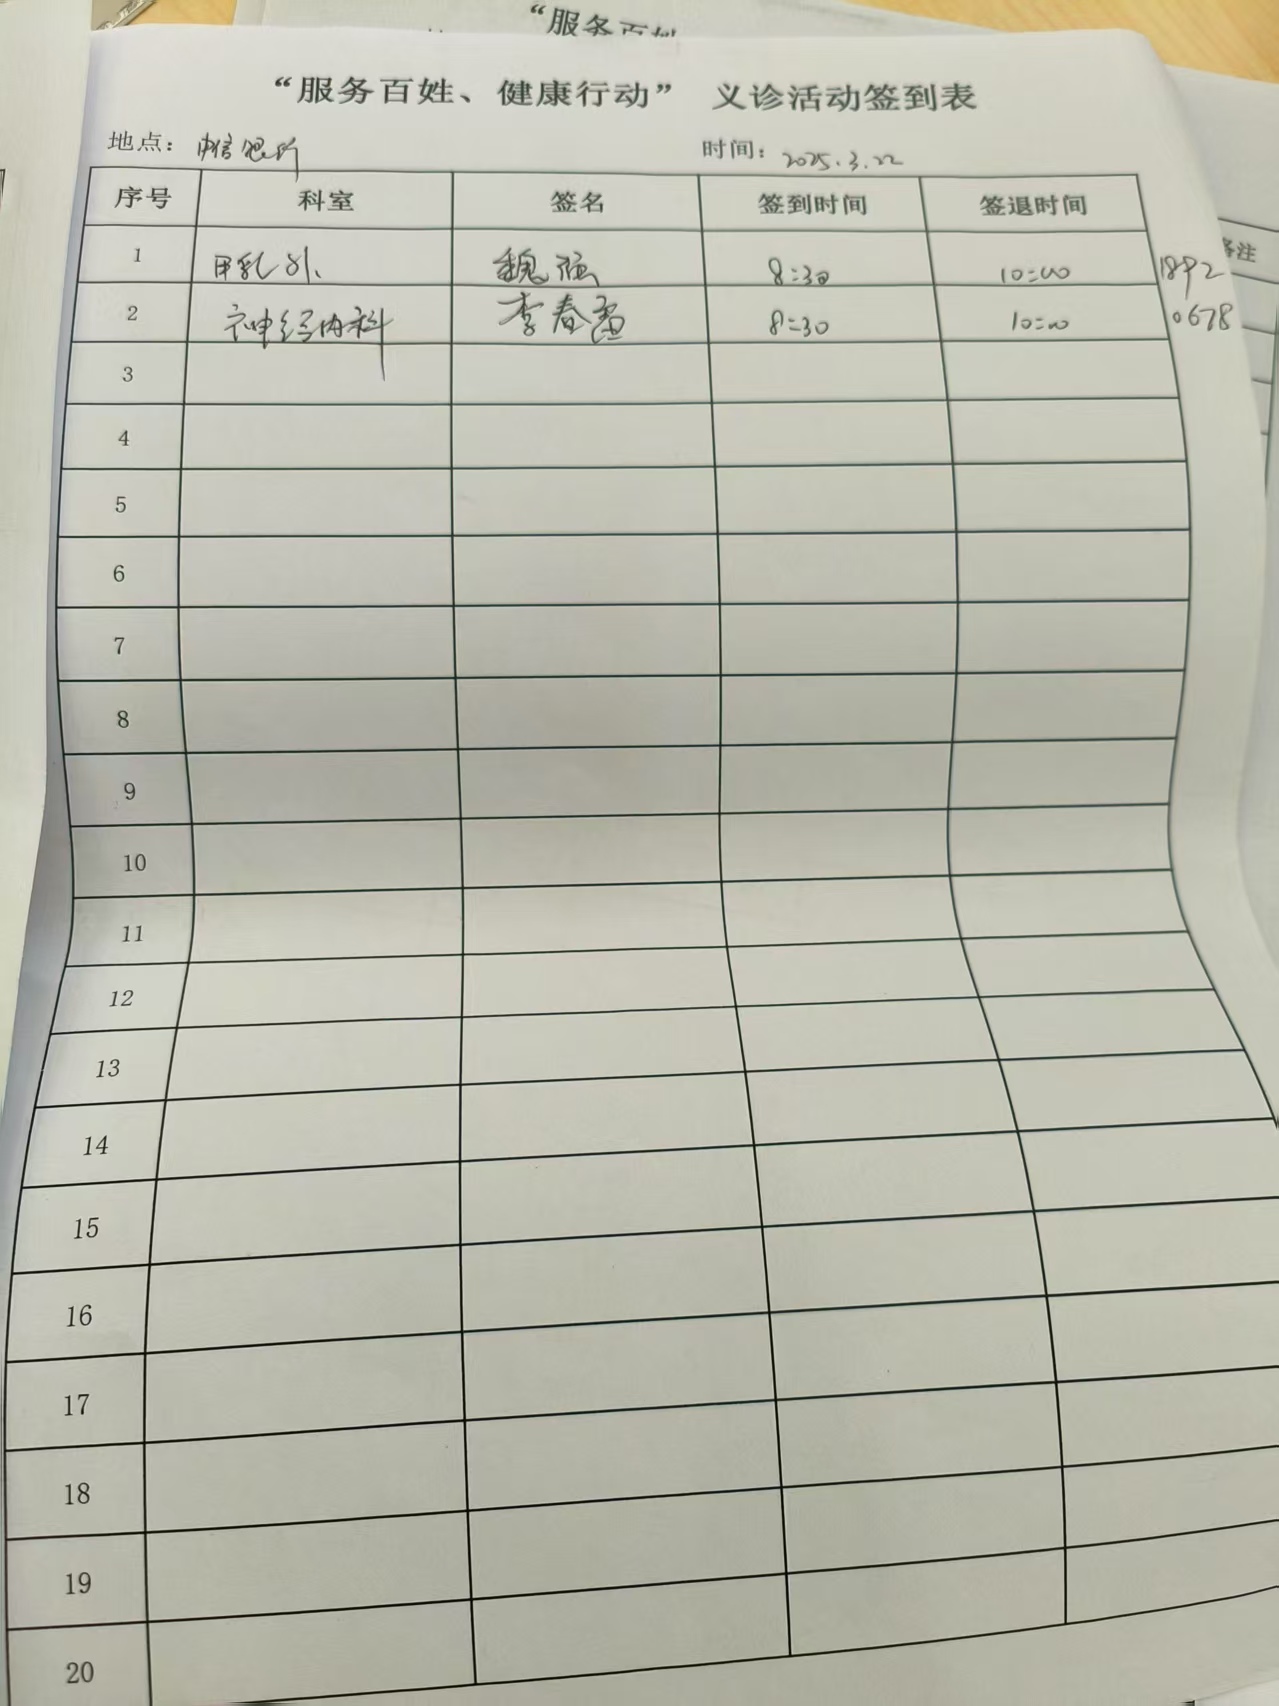 “服务百姓
“服务百姓、健康行动” 义诊活动签到表
地点：中信银行 时间：2025.3.22
序号 科室 签名 签到时间 签退时间
备注
1 甲乳外 魏强 8:30 10:00 1892
2 神经内科 李春盈 8:30 10:00 0678
3
4
5
6
7
8
9
10
11
12
13
14
15
16
17
18
19
20